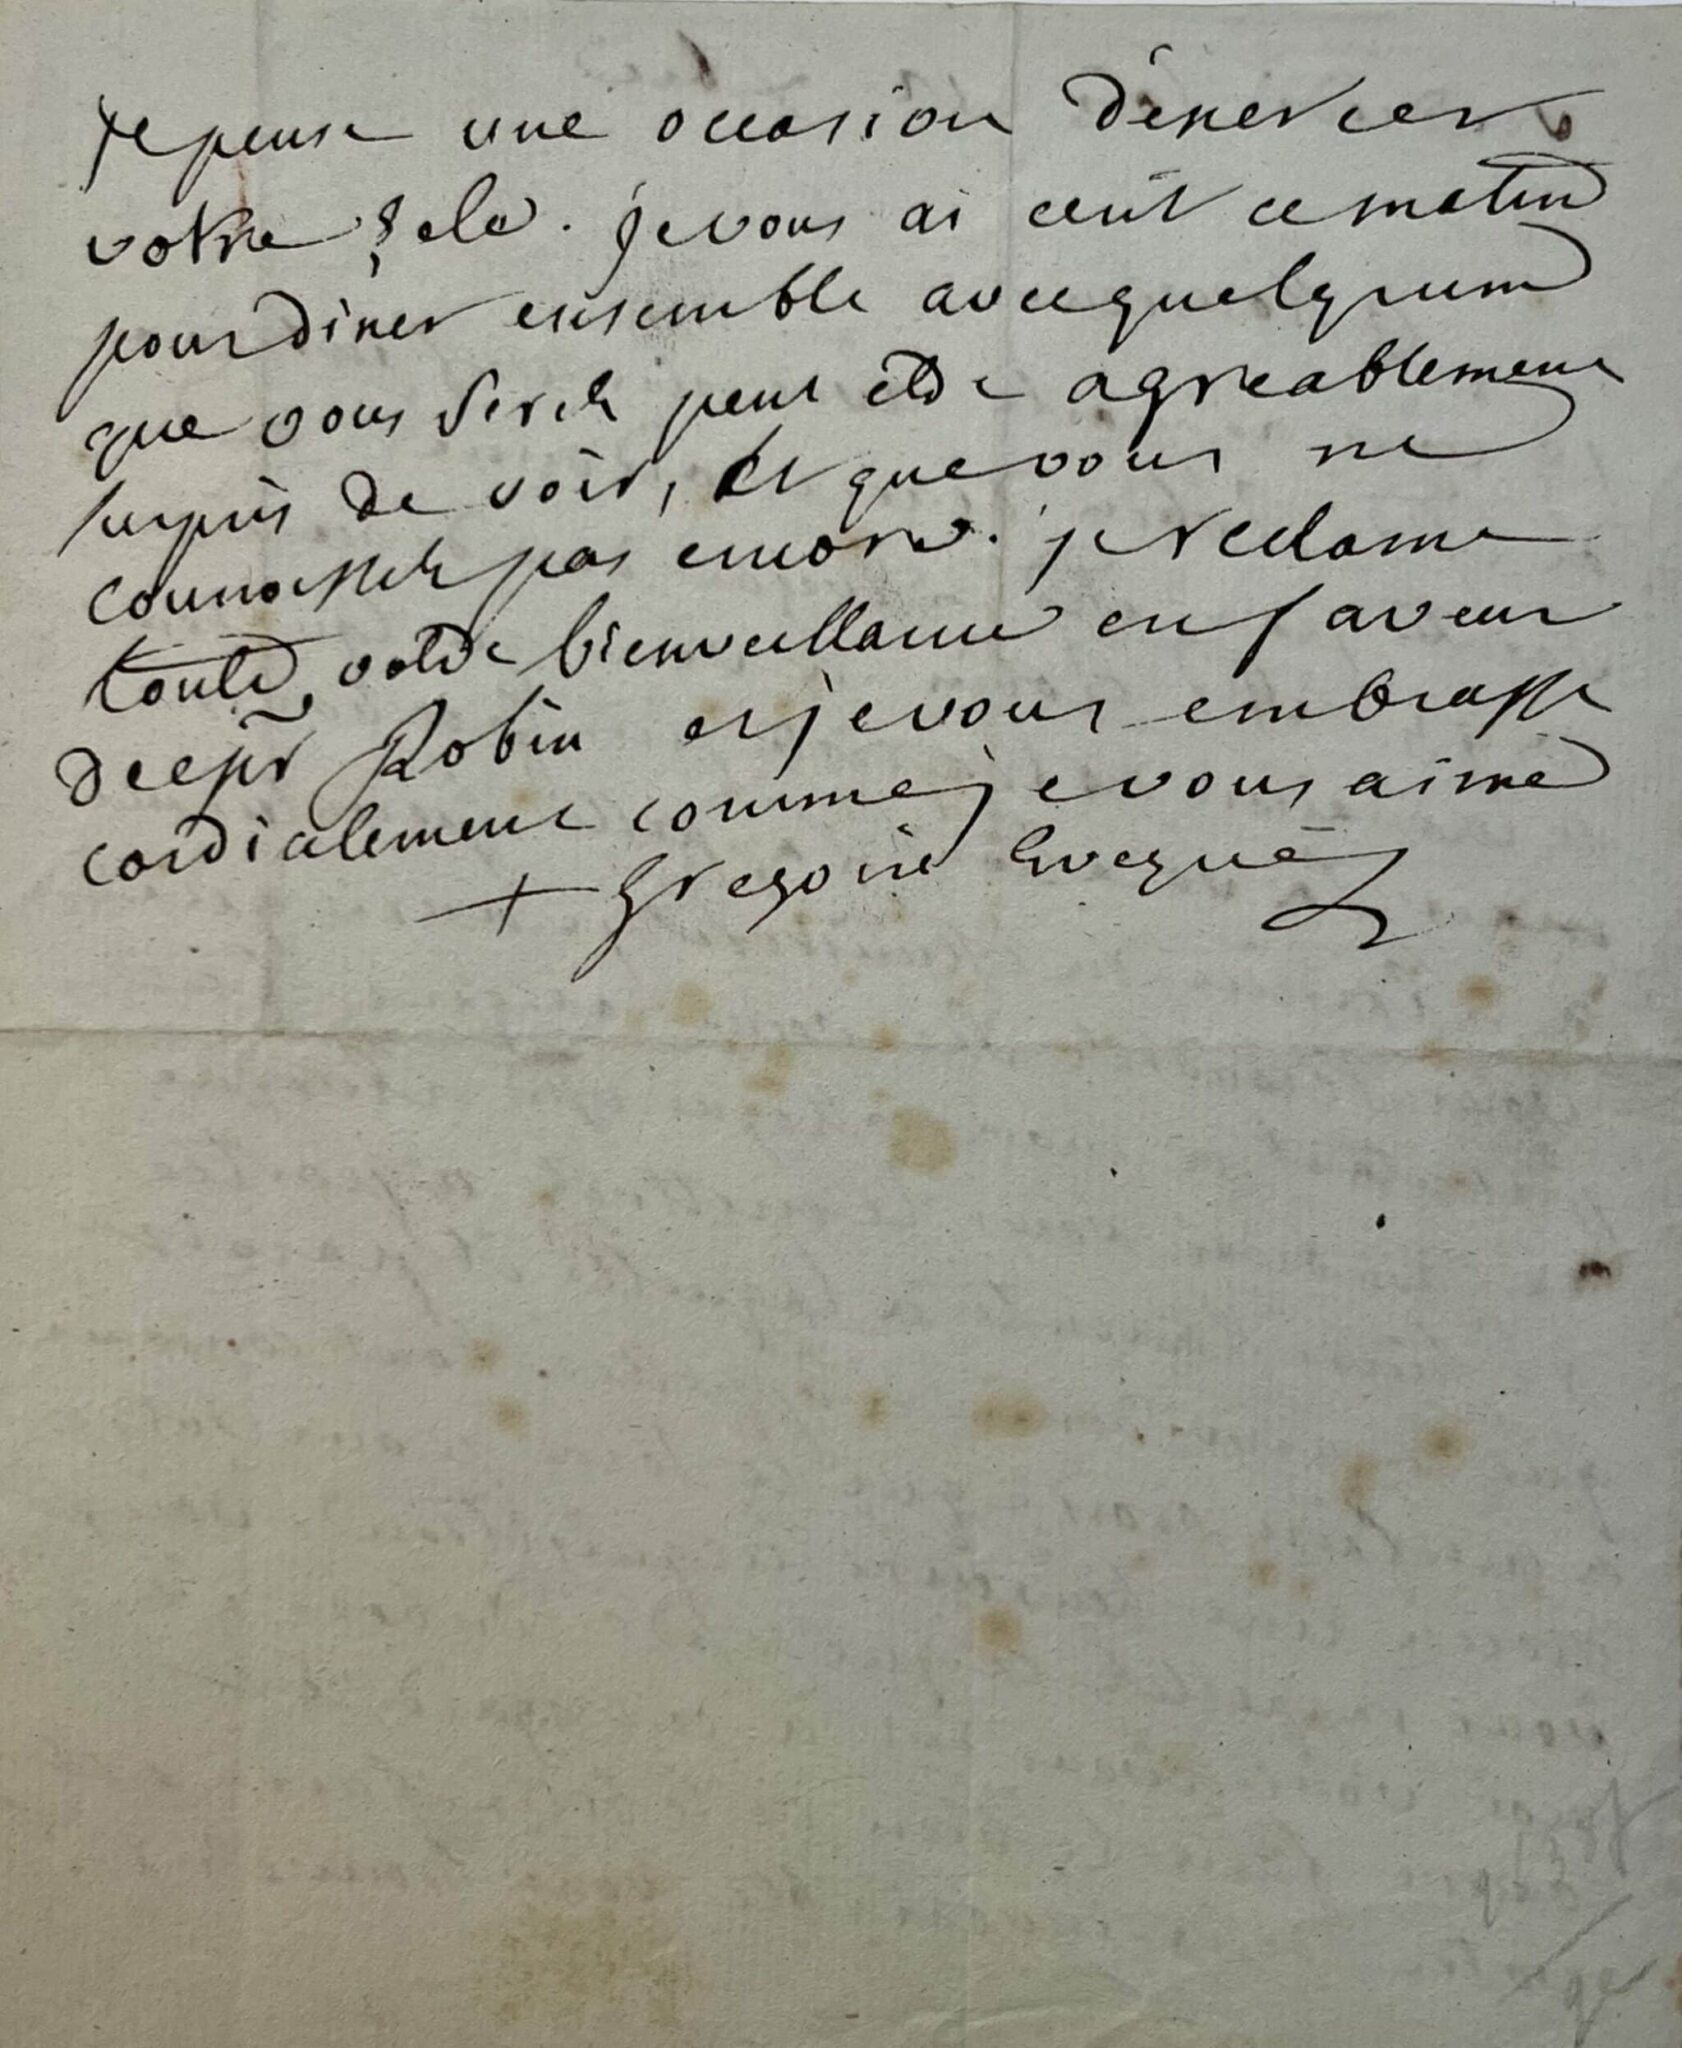 je pense une occasion d'exercer
votre zele. je vous ai ecrit ce matin
pour diner ensemble avec quelqu'un
que vous serez peut etre agreablement
surpris de voir, et que vous ne
connoissez pas encore. je reclame
toute votre bienveillance en faveur
de Robin et je vous embrasse
cordialement comme je vous aime
+ Gregoire Eveque